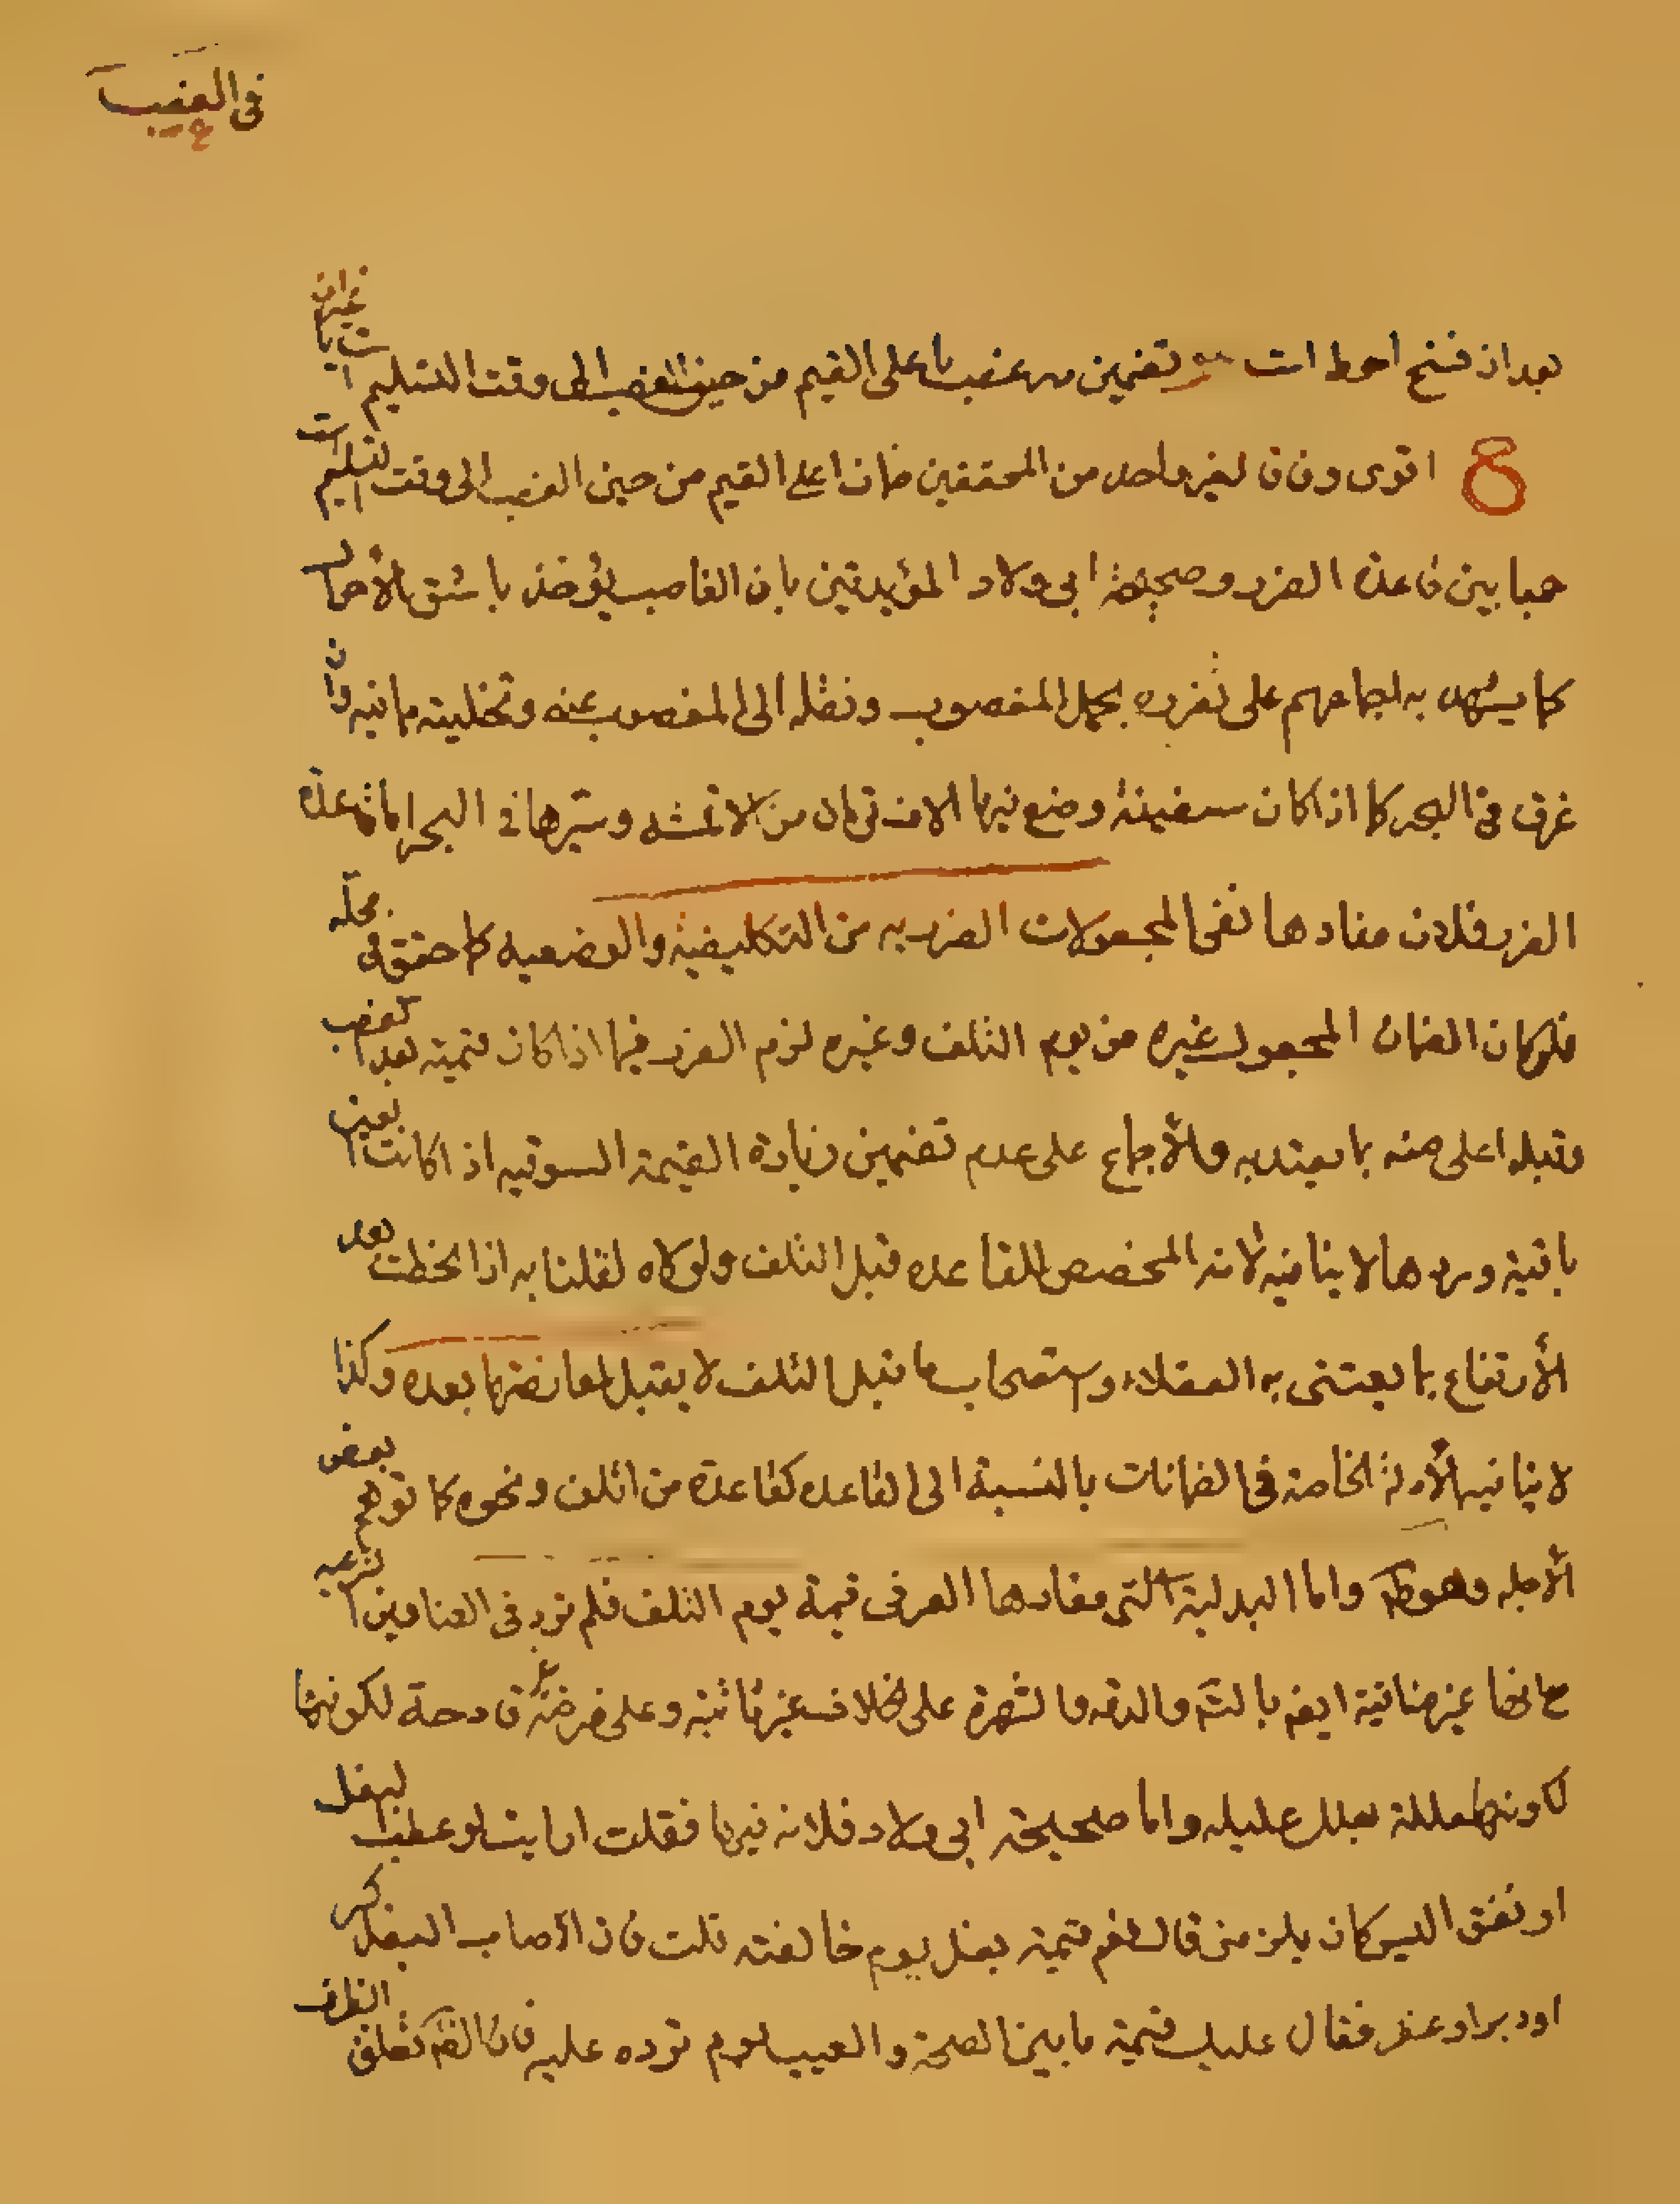 في الغصب
بعد از فسخ احوط است تضمين در غصب با على القيم من حين الغصب الى وقت التسليم
اقوى وفاقا لغير واحد من المحققين ضمان اعلى القيم من حين الغصب الى وقت التسليم
جمعا بين قاعدة الضرر وصحيحة ابي ولاد المؤيدتين بان الغاصب يؤخذ باشق الأحوال
كما يشهد به اجماعهم على تغريره بحمل المغصوب ونقله الى المغصوب عنه وتخليته مما فيه وان
غرق في البحر كما اذا كان سفينة وضع فيها الاف من الامتعة وسيرها في البحر اما قاعدة
الضرر فلان مفادها نفى المجعولات الضررية من التكليفية والوضعية كما حقق في محله
فلو كان الضمان المجعول غيره من يوم التلف وغيره لزم الضرر فيما اذا كان قيمته بعد الغصب
وقبله اعلى منه بما يعتد به والأجماع على عدم تضمين زيادة القيمة السوقيه اذا كانت العين
باقية وردها لا ينافيه لأنه المخصص للقاعده قبل التلف ولولاه لقلنا به اذا انحطت بعد
الأرتفاع بما يعتنى به العقلاء واستصحاب ما قبل التلف لا يقبل لمعارضتها بعده وكذا
لا ينافيها الأدلة الخاصة في الضمانات بالنسبة الى القاعده كقاعدة من اتلف ونحوه كما توهم بعض
الأجله وهو كما واما البدلية التى مفادها العرفى قيمة يوم التلف فلم نرد في العناوين الشرعيه
مع انها غير منافية ايضا والشهرة على الخلاف غير ثابتة وعلى فرضه غير قادحة لكونها
لكونها معللة بعلل عليله واما صحيحة ابي ولاد فلانه فيها فقلت ارايت لو عطب البغل
او نفق اليس كان يلزمنى قال نعم قيمة بغل يوم خالفته قلت فان اصاب البغل كسر
او دبر او عقر فقال عليك قيمة ما بين الصحة والعيب يوم ترده عليه فان تعلق الظرف